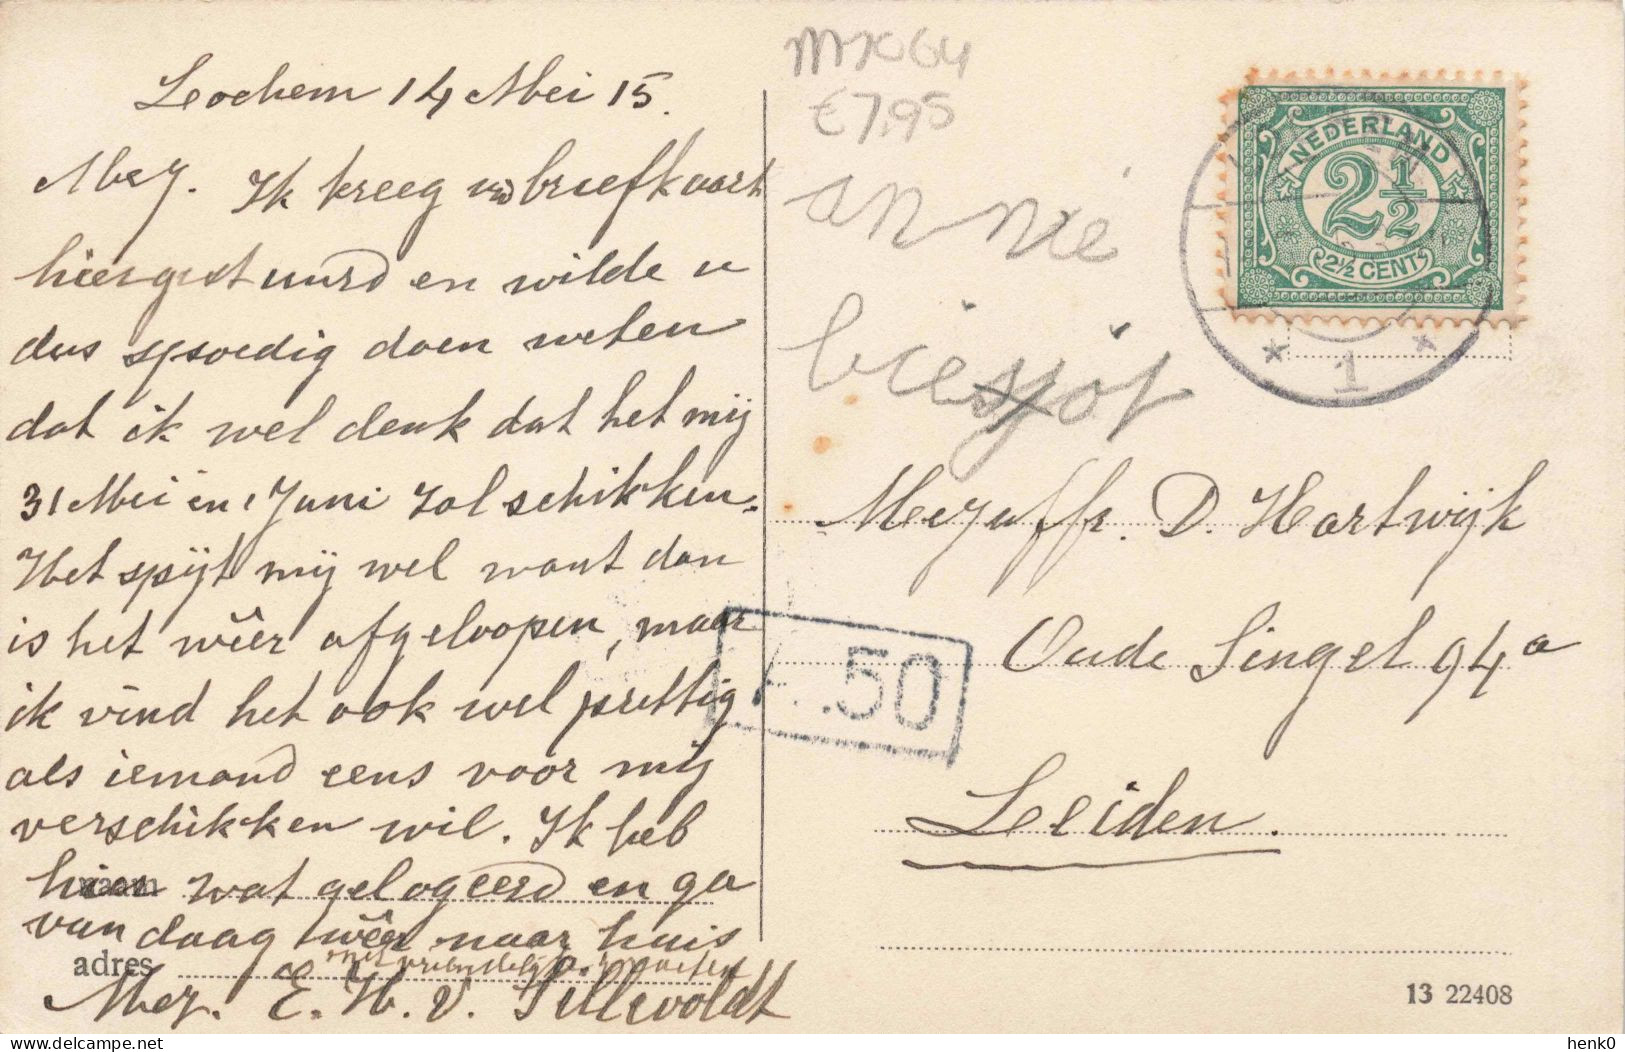 Lochem 14 Mei 15.
Mej. Ik kreeg uw briefkaart
hiergestuurd en wilde u
dus spoedig doen weten
dat ik wel denk dat het mij
31 Mei en 1 Juni zal schikken.
Het spijt mij wel want dan
is het wêer afgeloopen, maar
ik vind het ook wel prettig
als iemand eens voor mij
verschikken wil. Ik heb
hier wat gelogeerd en ga
van daag wêer naar huis
met vriendelijke groeten
Mej. E. H. v. Sillevoldt
naam
adres
€7,95
annie
NEDERLAND
2 1/2
2 1/2 CENT
1
.50
Mejuffr. D. Hartwijk
Oude Singel 94a
Leiden.
13 22408
delcampe.net
henk0